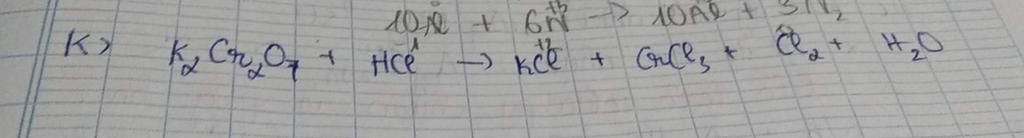 10Al + 6N⁺⁵ → 10Al + 3N₂
K> K₂Cr₂O₇ + HCl → KCl + CrCl₃ + Cl₂ + H₂O